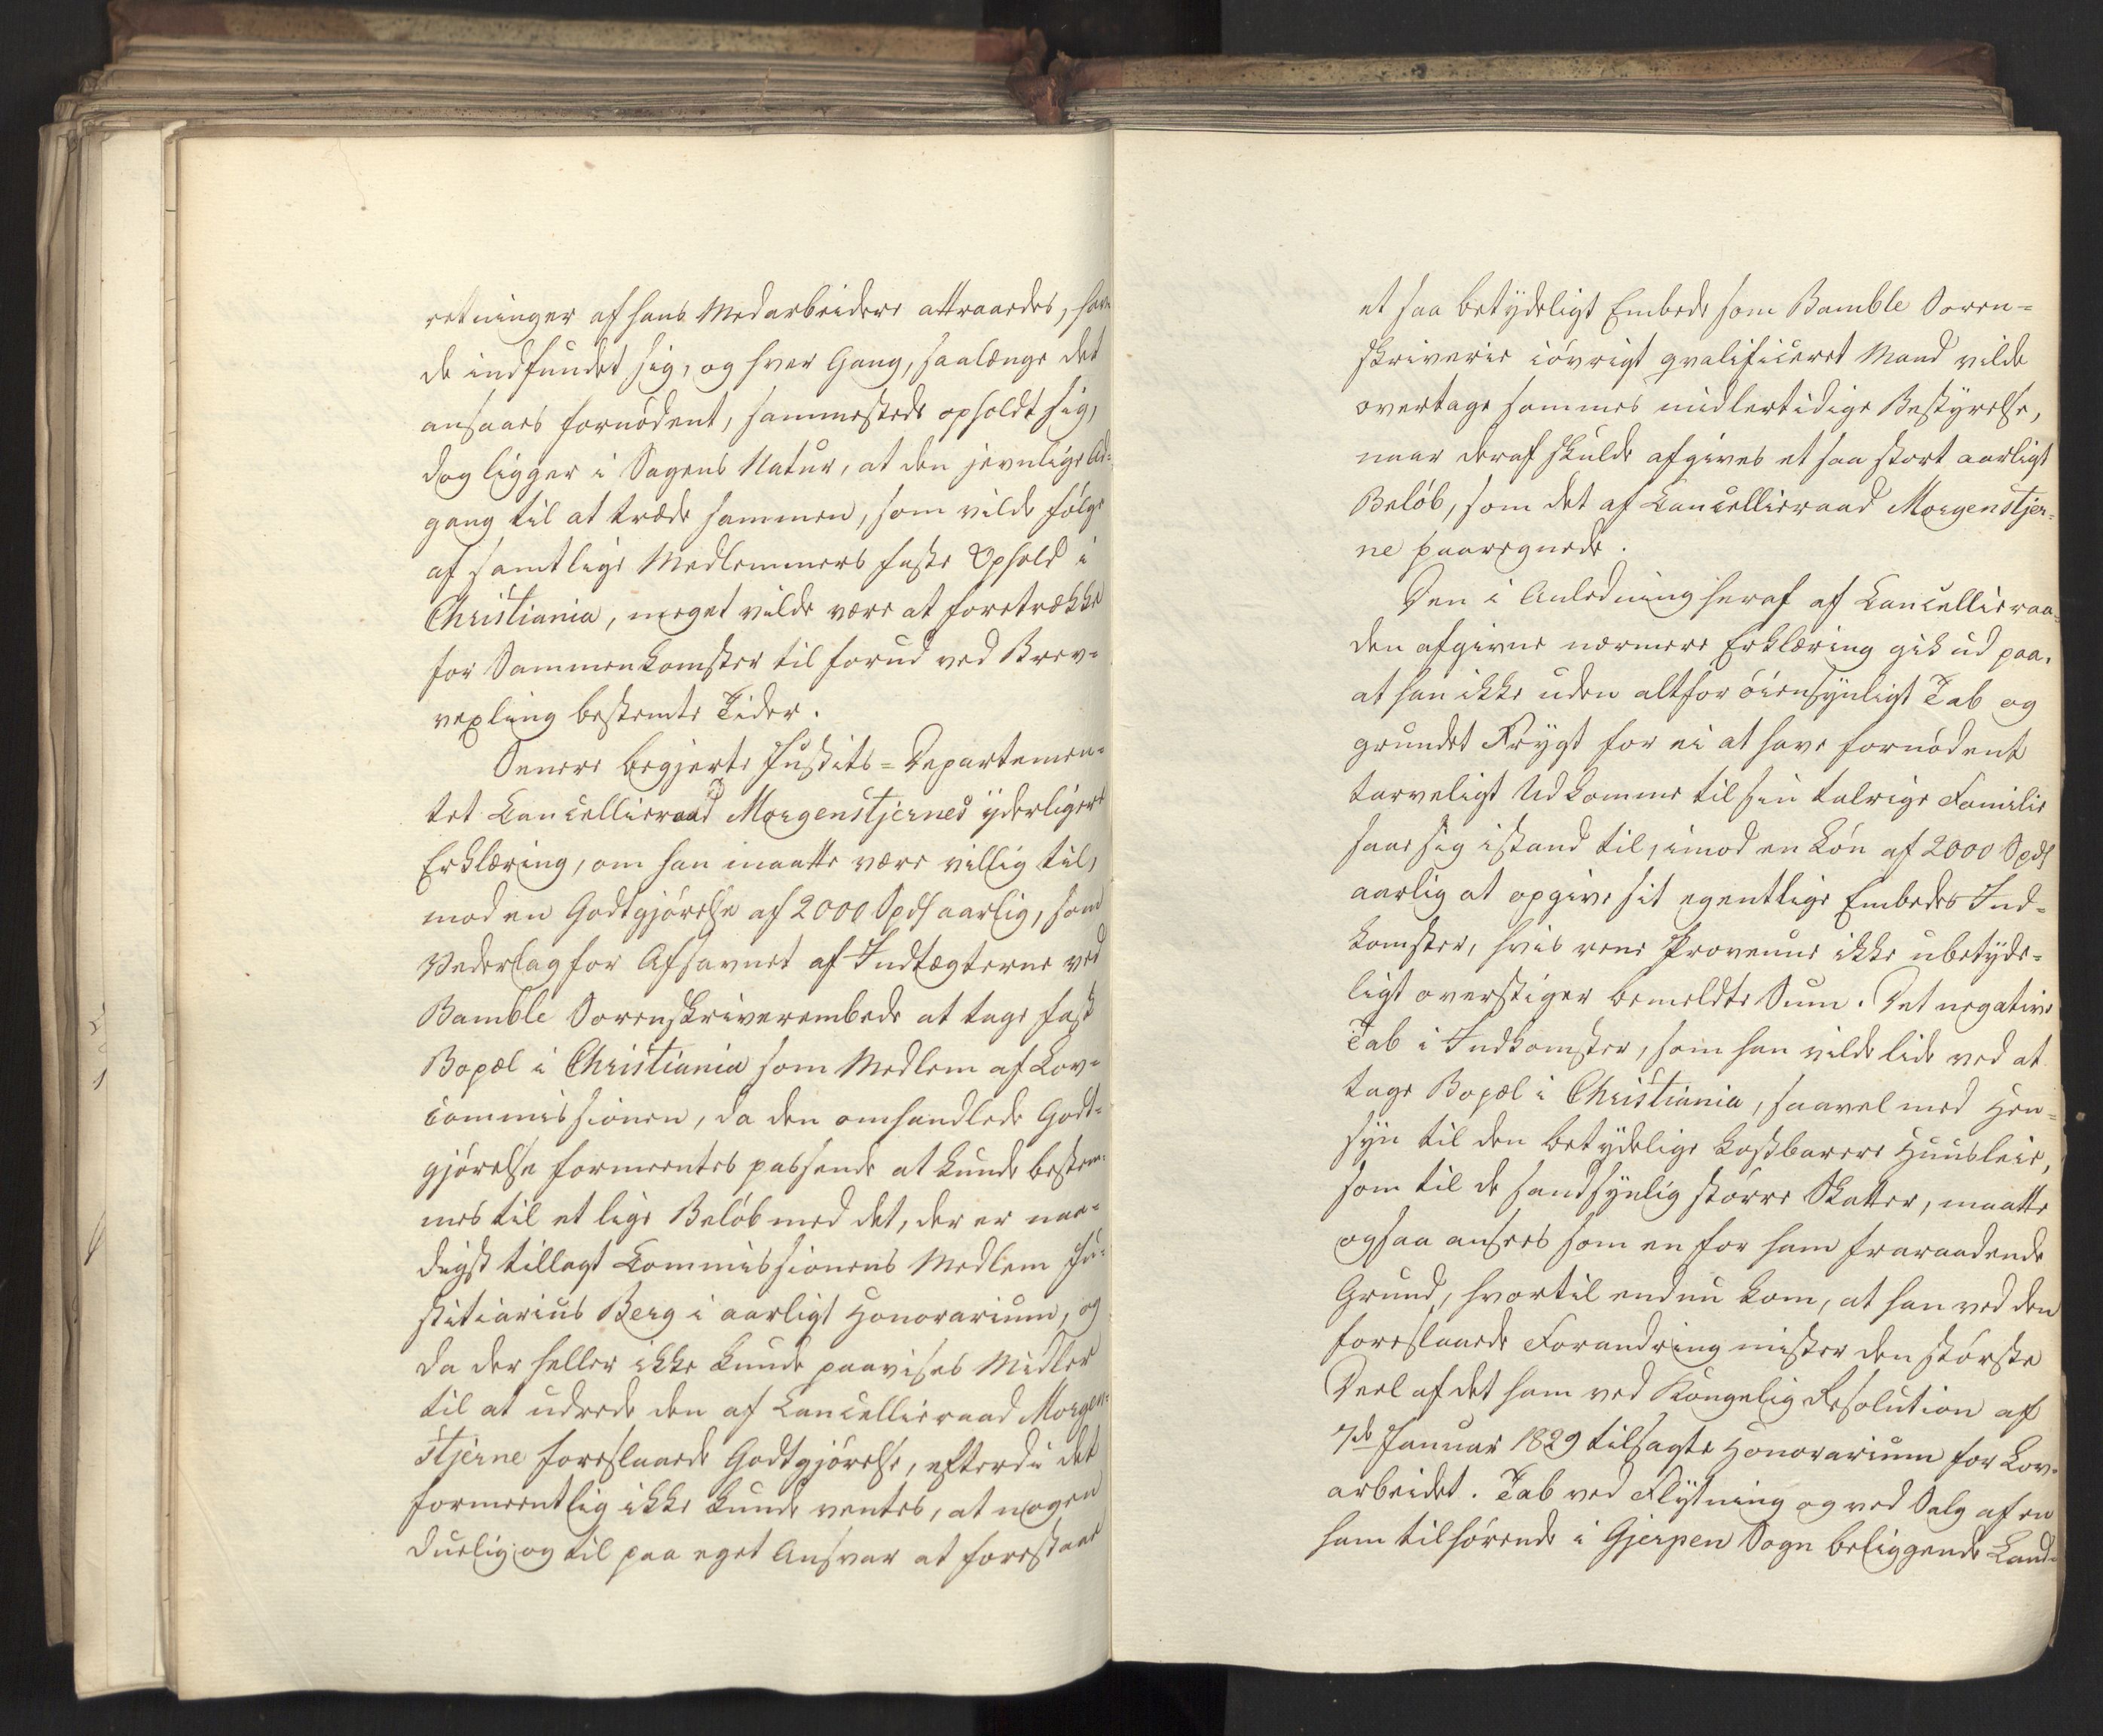 retninger af hans Medarbeidere attraaedes, hav
de indfundet sig, og hver Gang, saalænge det
ansaaes fornødent, sammesteds opholdt sig,
dog ligger i Sagens Natur, at den jevnlige Ad-
gang til at træde sammen, som vilde følge
af samtlige Medlemmers faste Ophold i
Christiania, meget vilde være at foretrække
for Sammenkomster til forud ved Brev-
vexling bestemte Tider.
Senere begjerte Justits-Departemen-
tet Cancellieraad Morgenstjernes yderligere
Erklæring, om han maatte være villig til,
mod en Godtgjørelse af 2000 Spdl aarlig, som
Vederlag for Afsavnet af Indtægterne ved
Bamble Sorenskriverembede at tage fast
Bopæl i Christiania som Medlem af Lov-
commissionen, da den omhandlede Godt-
gjørelse formeentes passende at kunde bestem-
mes til et lige Beløb med det, der er naa-
digst tillagt Commissionens Medlem Ju-
stitiarius Berg i aarligt Honorarium, og
da der heller ikke kunde paavises Midler
til at udrede den af Cancellieraad Morgen-
stjerne foreslaaede Godtgjørelse, efterdi det
formeentlig ikke kunde ventes, at nogen
duelig og til paa eget Ansvar at forestaae
et saa betydeligt Embede som Bamble Soren-
skriverie iøvrigt qvalificeret Mand vilde
overtage sammes midlertidige Bestyrelse,
naar deraf skulde afgives et saa stort aarligt
Beløb, som det af Cancellieraad Morgenstjer-
ne paaregnede.
Den i Anledning heraf af Cancellieraa-
den afgivne nærmere Erklæring gik ud paa,
at han ikke uden altfor øiensynligt Tab og
grundet Frygt for ei at have fornødent
tarveligt Udkomme til sin talrige Familie
saae sig istand til, imod en Løn af 2000 Spdl
aarlig at opgive sit egentlige Embeds Ind-
komster, hvis rene Provenue ikke ubetyde-
ligt overstiger bemeldte Sum. Det negative
Tab i Indkomster, som han vilde lide ved at
tage Bopæl i Christiania, saavel med Hen-
syn til den betydelige kostbarere Huusleie,
som til de sandsynlig større Skatter, maatte
ogsaa ansees som en for ham fraraadende
Grund, hvortil endnu kom, at han ved den
foreslaaede Forandring mister den største
Deel af det ham ved Kongelig Resolution af
7de Januar 1829 tilsagte Honorarium for Lov-
arbeidet. Tab ved Flytning og ved Salg af en
ham tilhørende i Gjerpen Sogn beliggende Land-